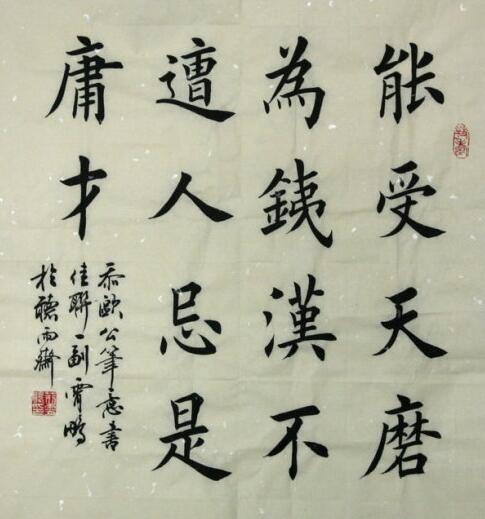 能受天磨
為銕漢不
遭人忌是
庸才
歐公筆意書
佳聯一副霄鵬
於聽雨齋